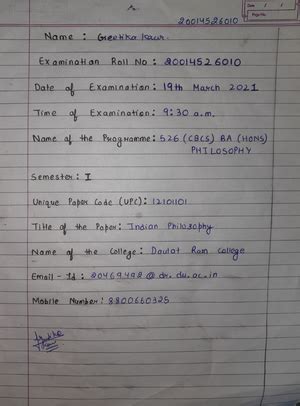 20014526010
Date / /
Page No.
Name : Geetika Kaur.
Examination Roll No : 20014526010
Date of Examination : 19th March 2021
Time of Examination : 9:30 a.m.
Name of the Programme : 526 (CBCS) BA (HONS)
PHILOSOPHY
Semester : I
Unique Paper Code (UPC) : 12101101
Title of the Paper : Indian Philosophy
Name of the College : Daulat Ram College
Email - Id : 20469498 @ dr. du. ac. in
Mobile Number : 8800660325